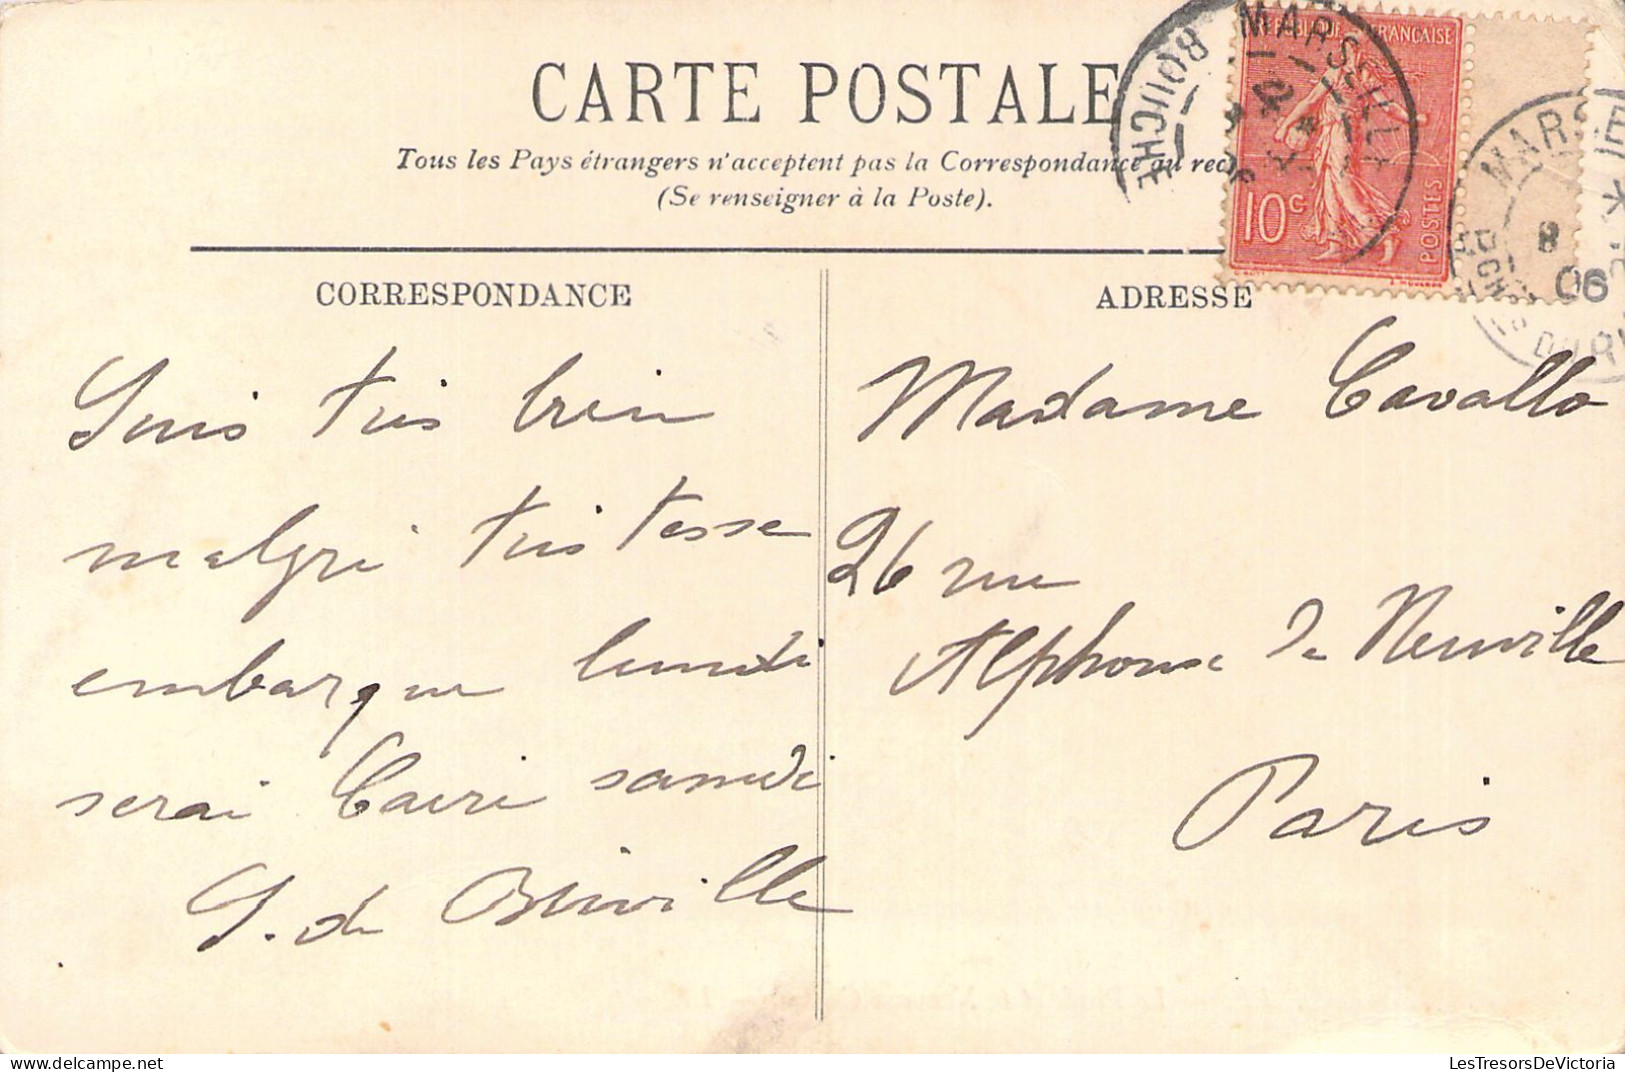 CARTE POSTALE
Tous les Pays étrangers n'acceptent pas la Correspondance au rec
(Se renseigner à la Poste).
RÉPUBLIQUE FRANÇAISE
10c
POSTES
MARSEILLE
BOUCHE
06
CORRESPONDANCE
ADRESSE
Suis très bien
malgré tristesse
embarque lundi
serai Caire samedi
Madame Cavallo
26 rue
Alphonse de Neuville
Paris
LesTresorsDeVictoria